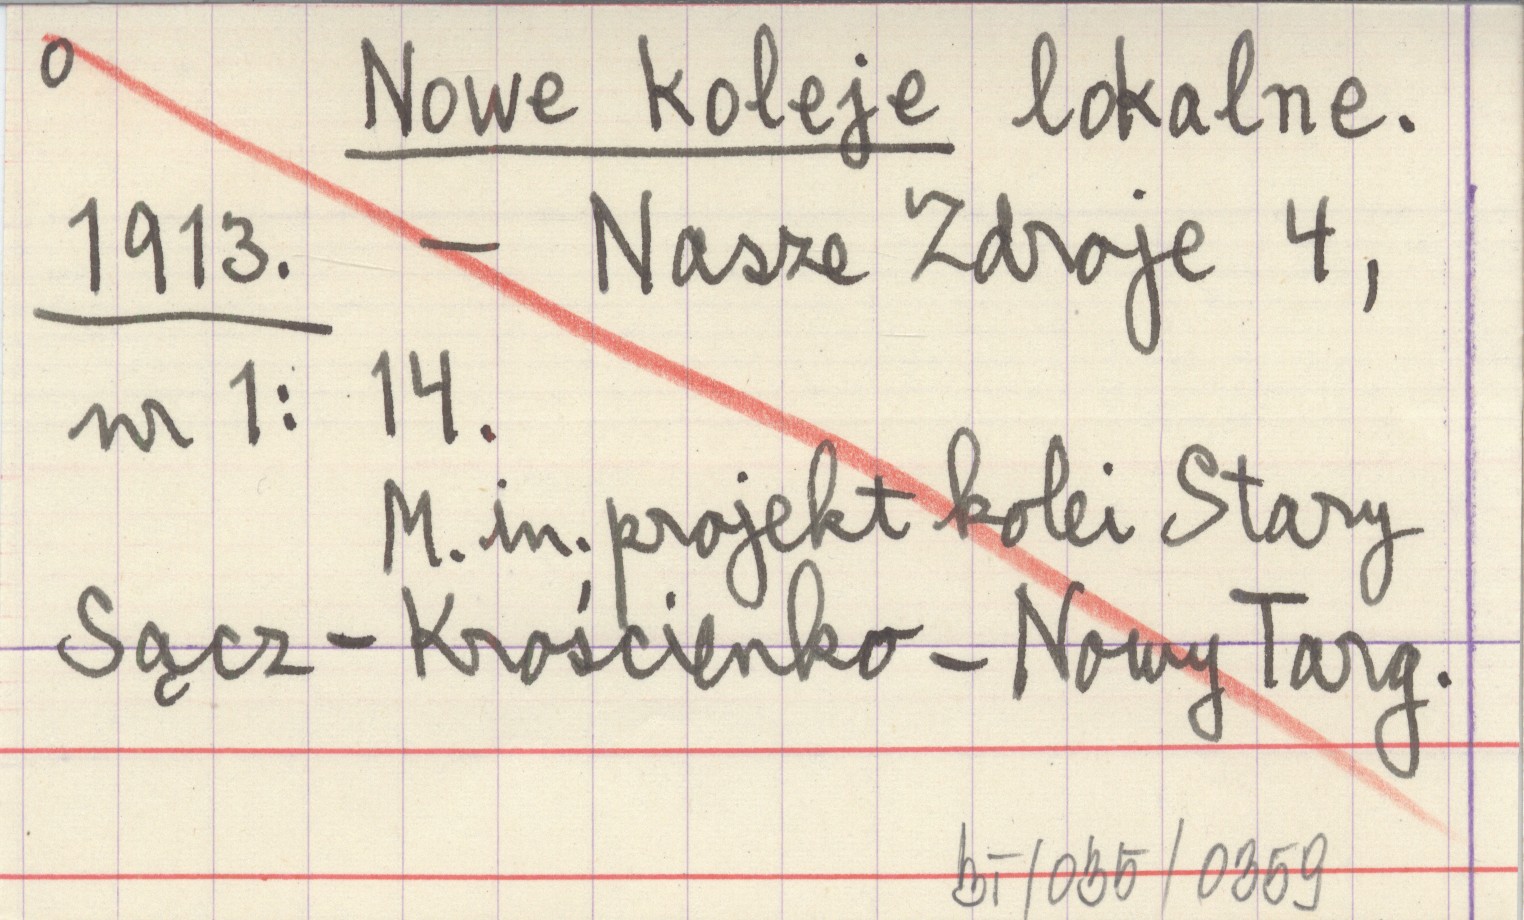 o Nowe koleje lokalne.
1913. — Nasze Zdroje 4,
nr 1: 14.
M. in. projekt kolei Stary
Sącz - Krościenko - Nowy Targ.
bI/035/0359